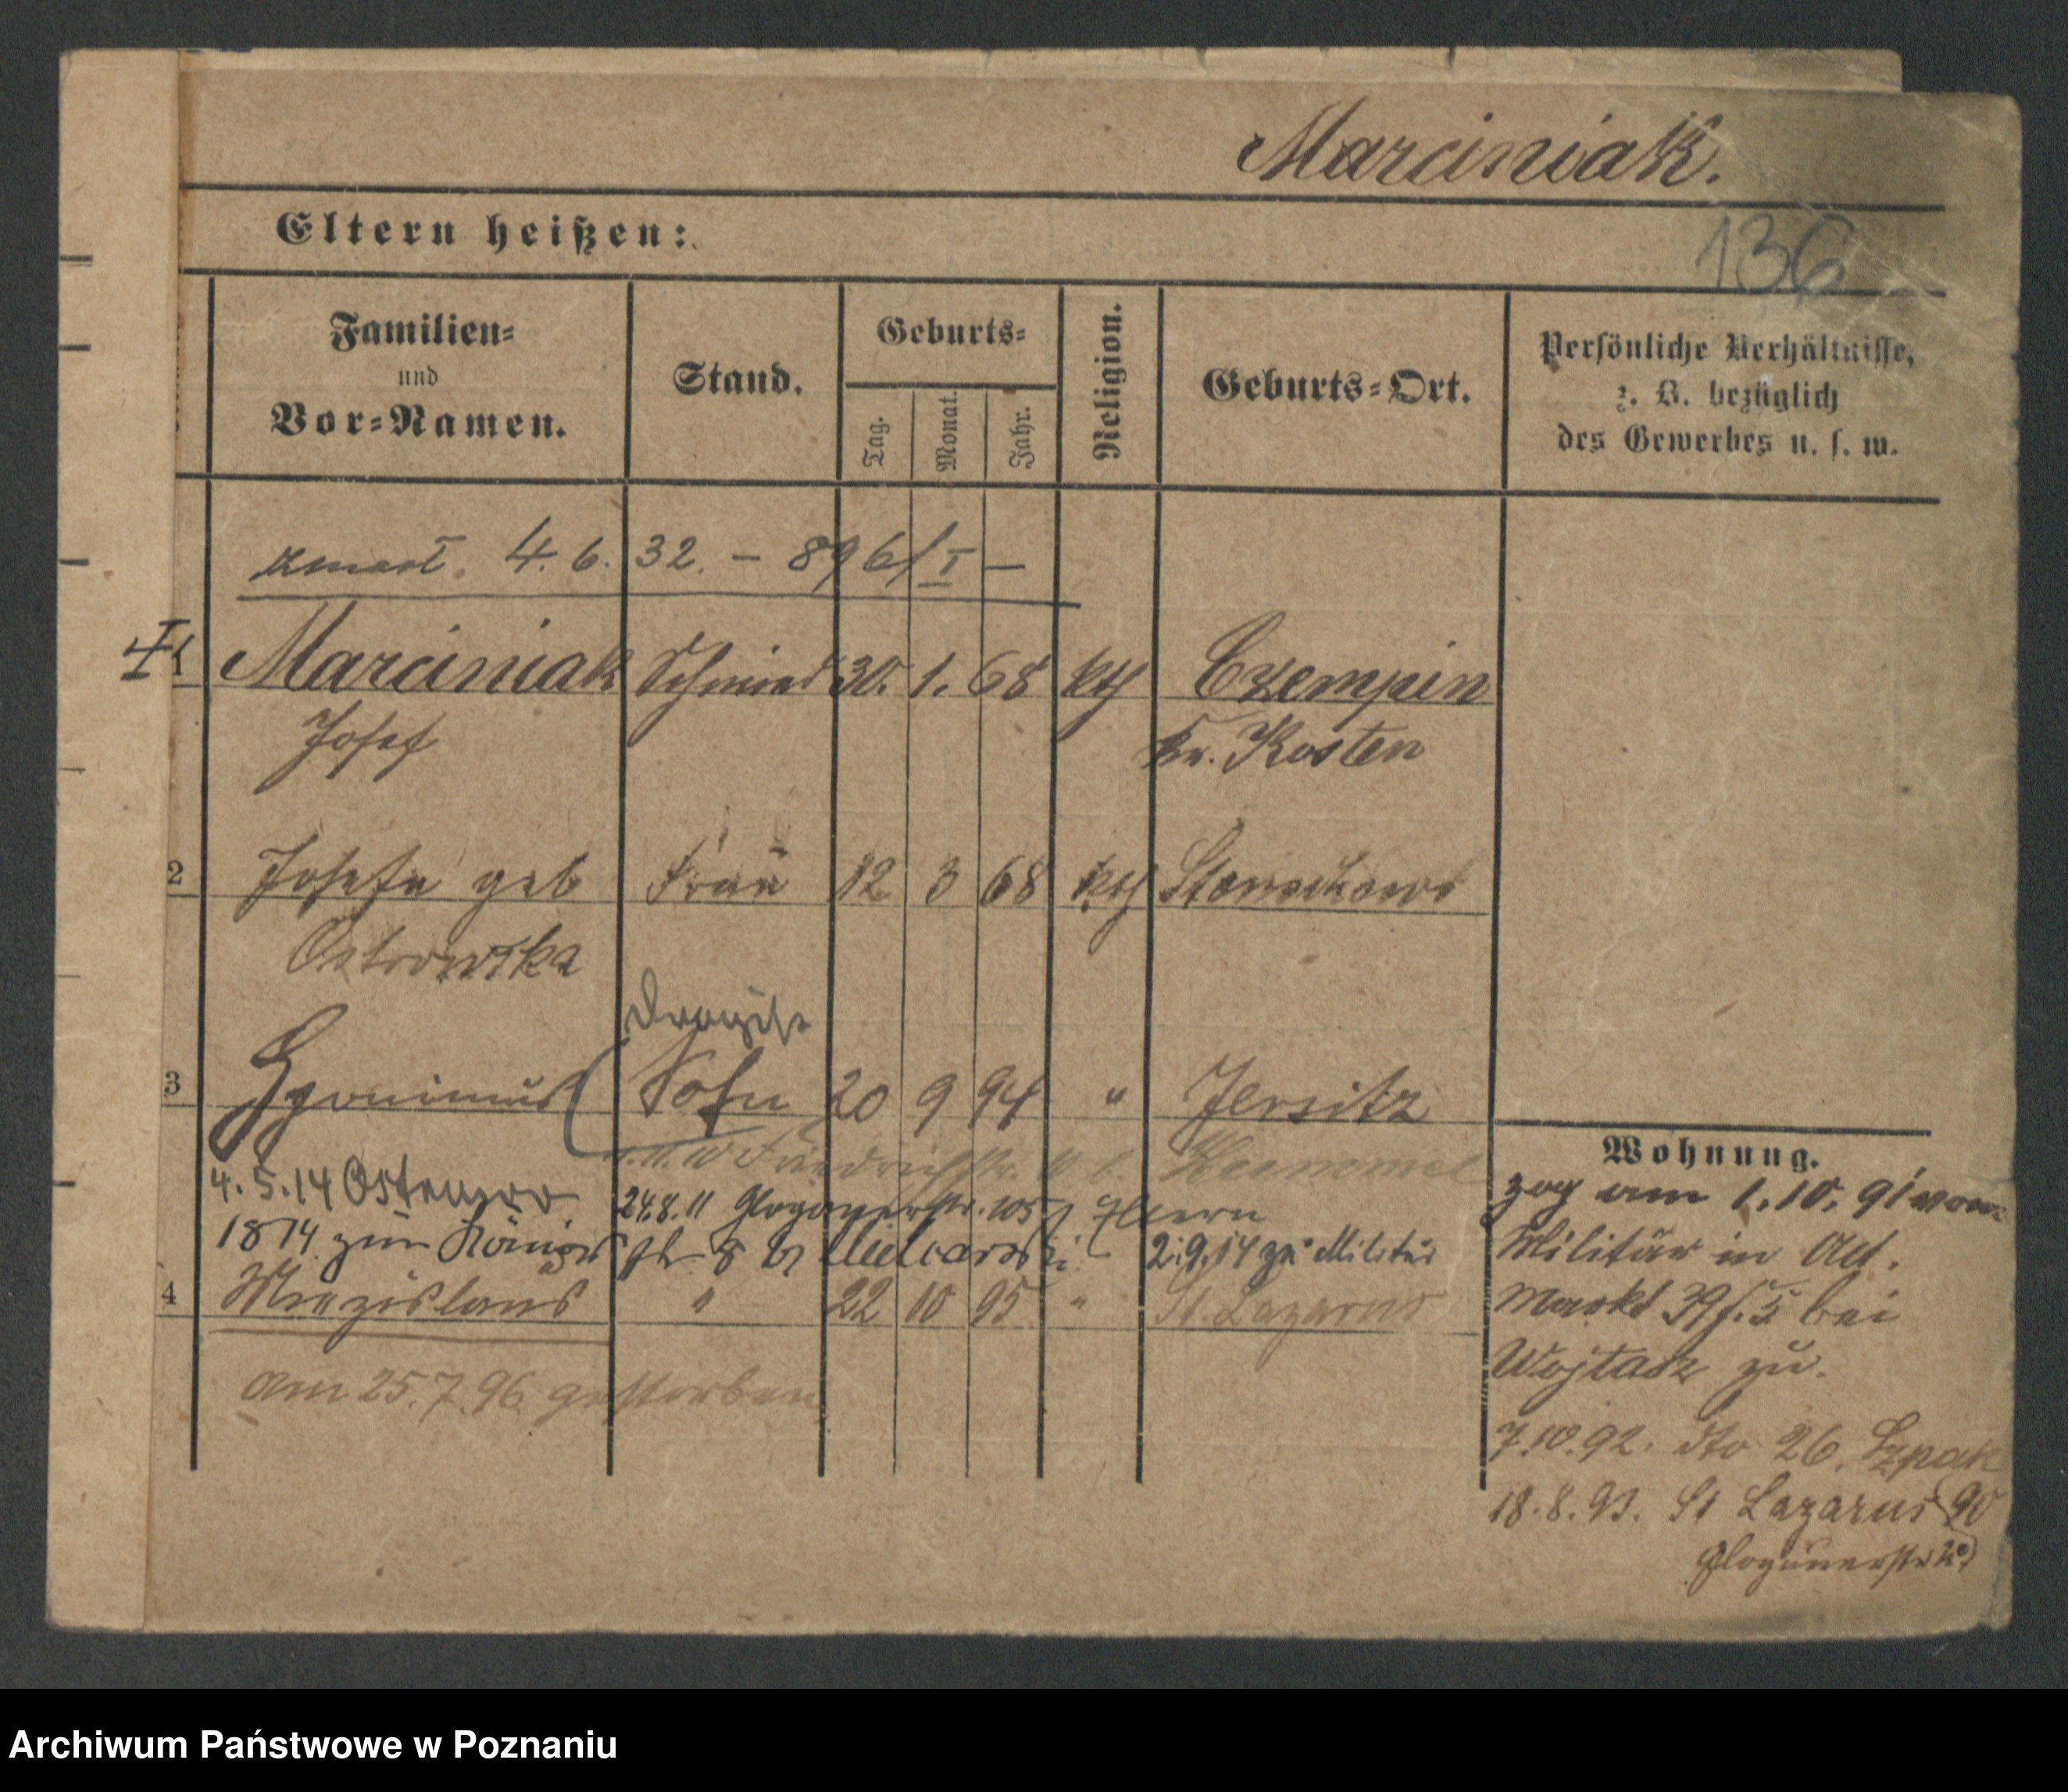 Marciniak.
136
Eltern heißen:
Familien=
und
Vor=Namen.
Stand.
Geburts=
Tag.
Monat.
Jahr.
Religion.
Geburts=Ort.
Persönliche Verhältnisse,
z. B. bezüglich
des Gewerbes u. s. w.
zmarł 4. 6. 32. – 896/I –
1 Marciniak Schmied 30. 1. 68 kth Czempin
Josef Kr. Kosten
2 Josefa geb Frau 12 3 68 kth
Ostrowska
Drogist
3 Hyronimus Sohn 20 9 94 " Jersitz
Friedrichstr.
4. 5. 14 24.8.11 Glogauerstr. 105 Eltern
1814 zur 8 b 2.9.14 zu Militär
4 Miezislaus " 22 10 95 " St. Lazarus
am 25. 7. 96 gestorben
Wohnung.
zog am 1. 10. 91 vom
Militär in Alt.
Markt 39 bei
Wojtasz zu.
7.10.92. dto 26. Szpak
18. 8. 93. St Lazarus 90
Glogauerstr
Archiwum Państwowe w Poznaniu